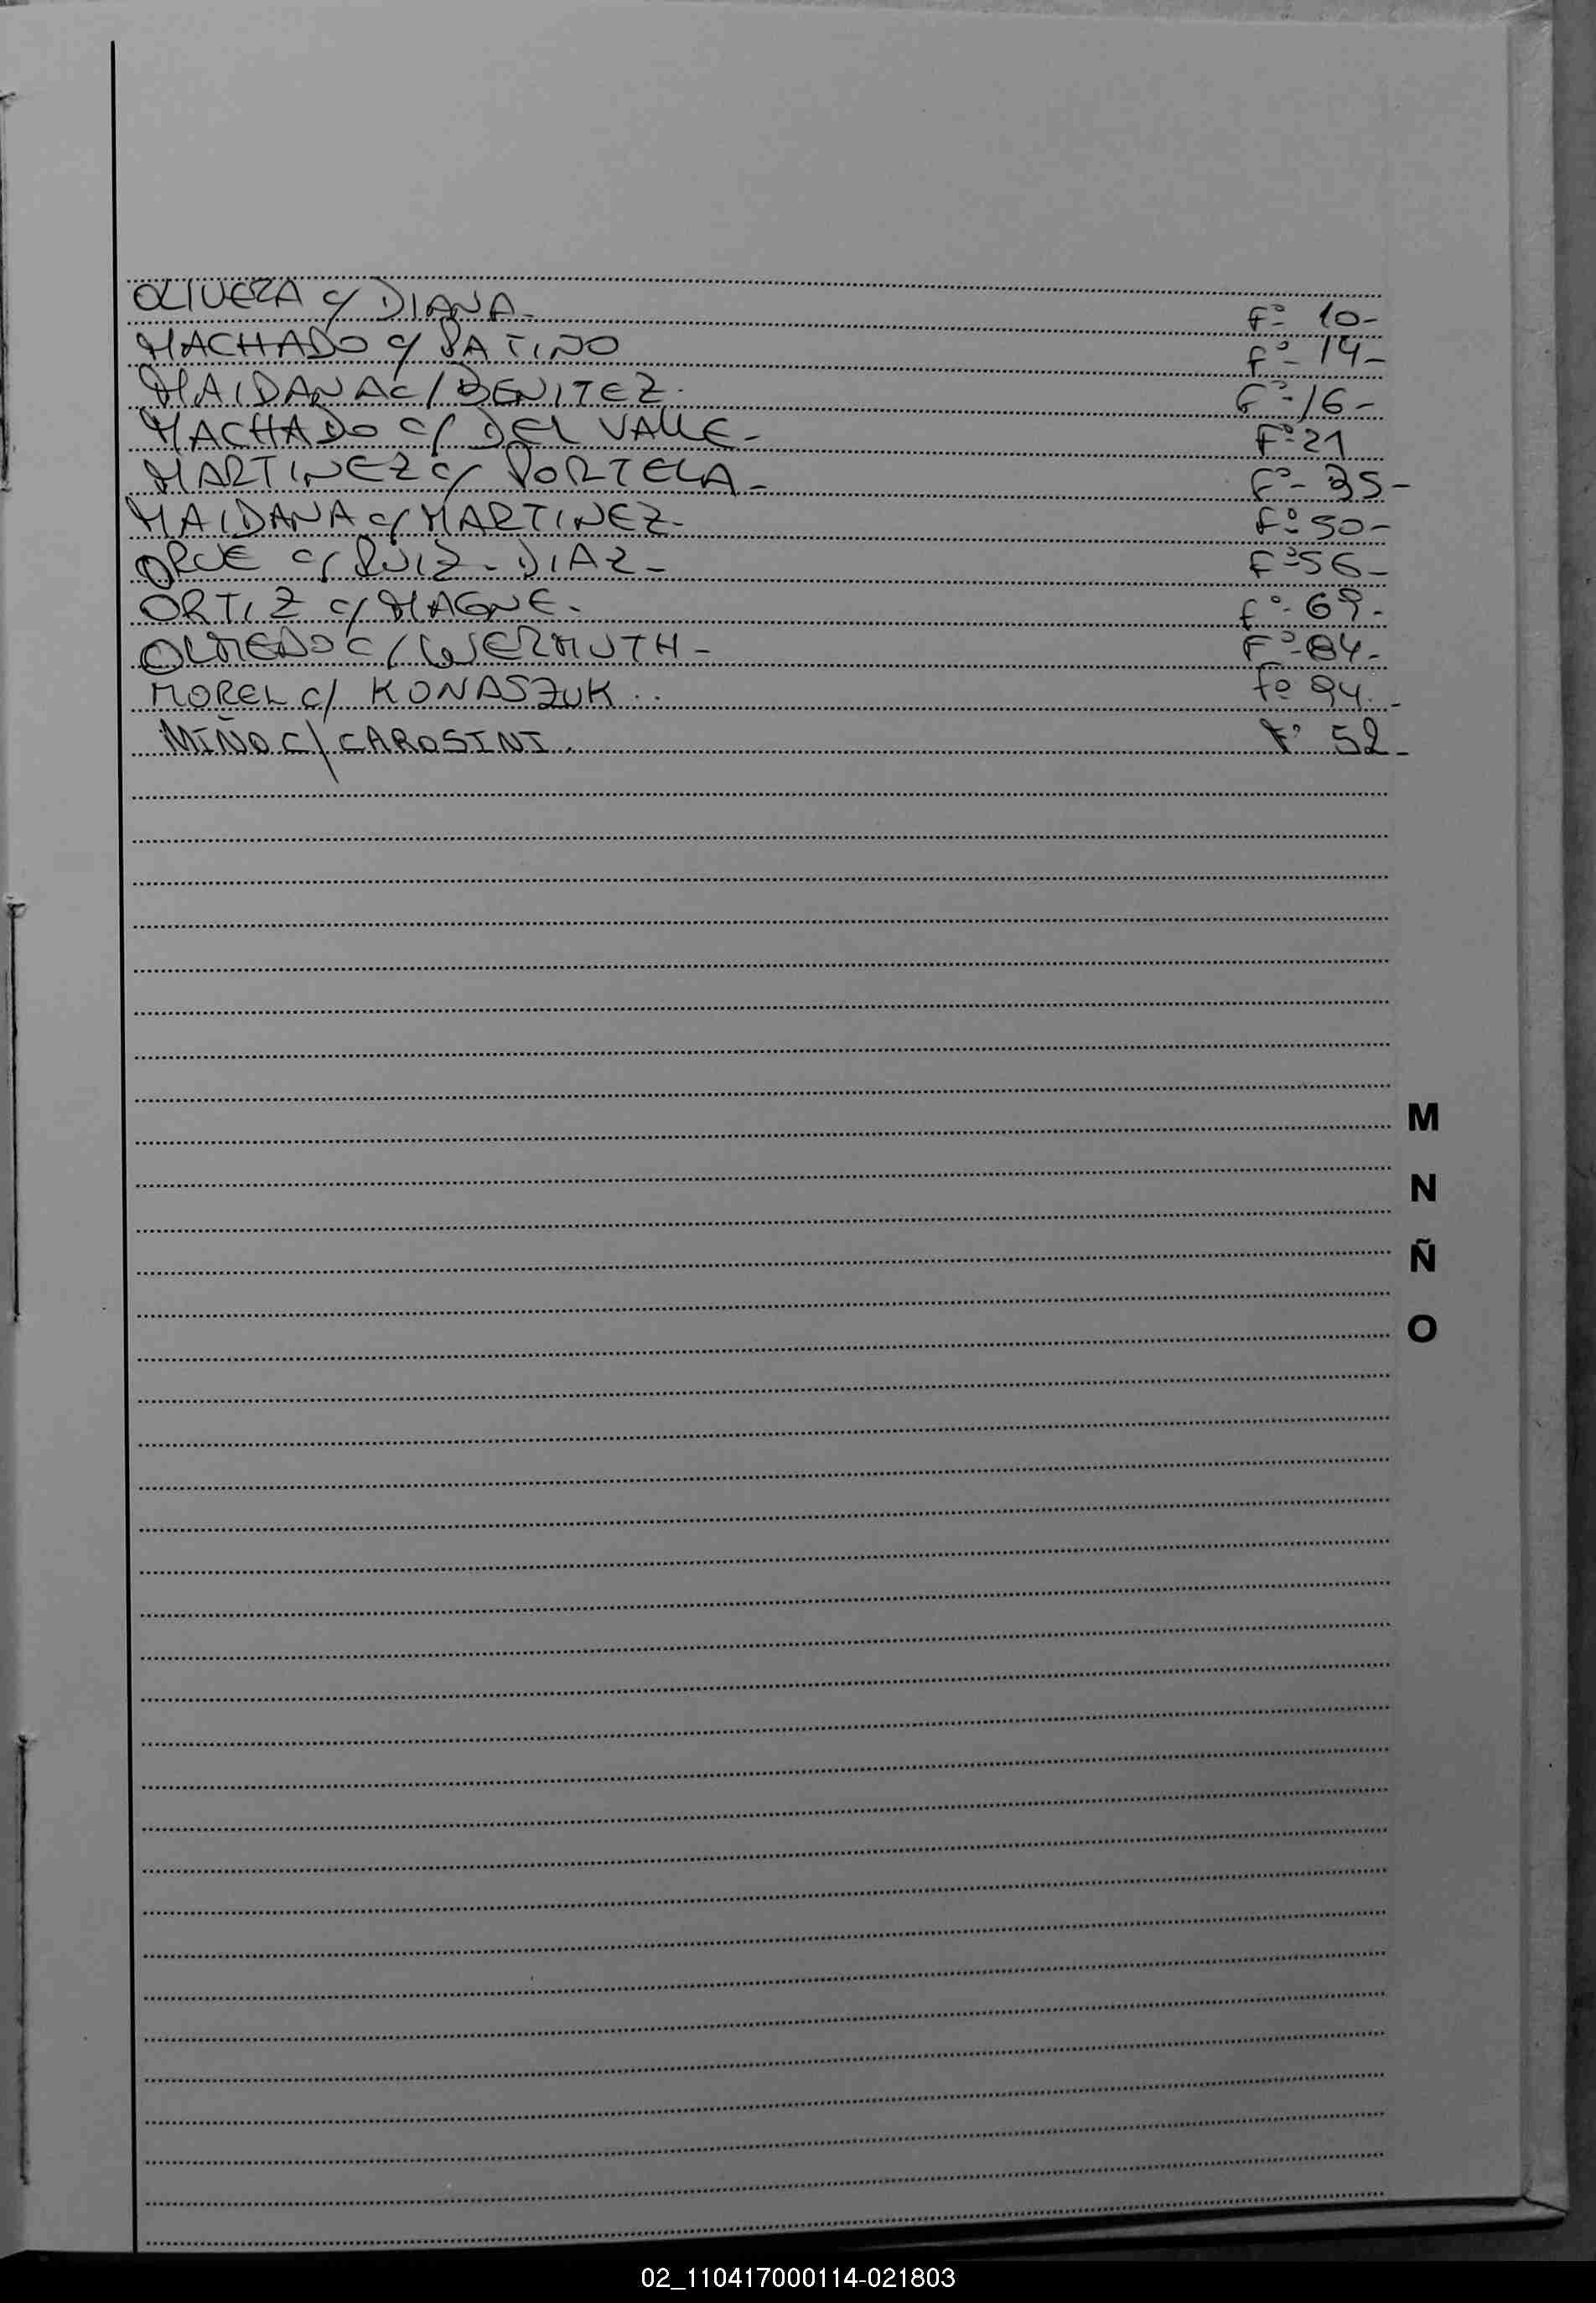 OLIVERA c/ DIANA - Fº 10-
MACHADO c/ PATINO Fº 14-
MAIDANA c/ BENITEZ. Fº 16-
MACHADO c/ DEL VALLE - Fº 21
MARTINEZ c/ PORTELA - Fº 35-
MAIDANA c/ MARTINEZ - Fº 50-
ORUE c/ RUIZ - DIAZ - Fº 56-
ORTIZ c/ MAGNE - Fº 69-
OLMEDO C/ WERMUTH - Fº 84-
MOREL c/ KONASZUK .. fº 94.-
MIÑO C/ CAROSINI. fº 52-
M
N
Ñ
O
02_110417000114-021803